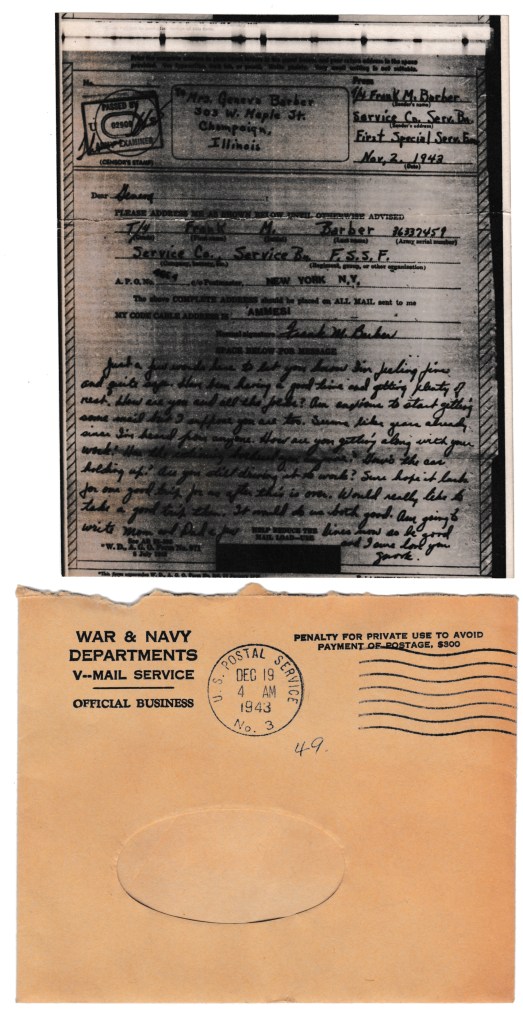 No.
To Mrs. Geneva Barber
303 W. Maple St.
Champaign,
Illinois
PASSED BY
02908
EXAMINER
(CENSOR'S STAMP)
From
T/4 Frank M. Barber
(Sender's name)
Service Co. Serv. Bn.
(Sender's address)
First Special Serv.
Nov. 2, 1943
(Date)
Dear Geneva
PLEASE ADDRESS ME AS SHOWN BELOW UNTIL OTHERWISE ADVISED
T/4 Frank M. Barber 36337459
(Last name) (Army serial number)
Service Co., Service Bn. F.S.S.F.
(Regiment, group, or other organization)
A. P. O. No. c/o Postmaster, NEW YORK N.Y.
The above COMPLETE ADDRESS should be placed on ALL MAIL sent to me
MY CODE CABLE ADDRESS IS AMMESI
Frank M. Barber
SPACE BELOW FOR MESSAGE
Just a few words here to let you know I'm feeling fine
and quite safe. Have been having a good time and getting plenty of
rest. How are you and all the folks? Am anxious to start getting
some mail but I suppose you are too. Seems like years already
since I'm heard from anyone. How are you getting along with your
work? How's the car
holding up? Are you still driving it to work? Sure hope it lasts
for one good trip for us after this is over. Would really like to
take a good trip then. It would do us both good. Am going to
write Mom and Dad a few lines now so be good
and I sure love you
HELP REDUCE THE
MAIL LOAD
W. D., A. G. O. Form No.
WAR & NAVY
DEPARTMENTS
V--MAIL SERVICE
OFFICIAL BUSINESS
U. S. POSTAL SERVICE
DEC 19
4 AM
1943
No. 3
PENALTY FOR PRIVATE USE TO AVOID
PAYMENT OF POSTAGE, $300
49.